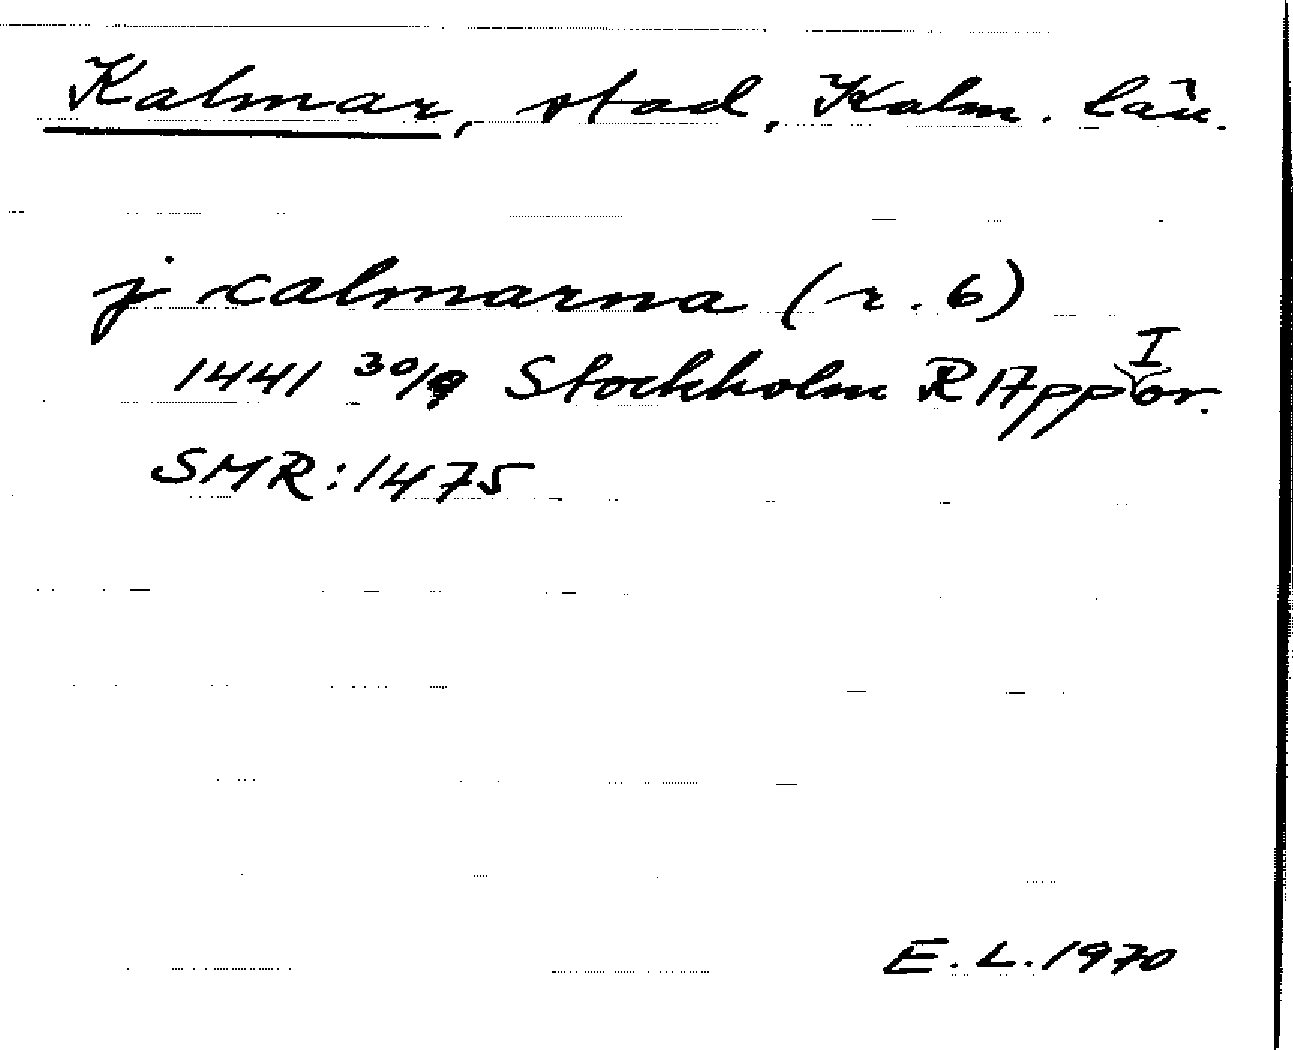 Kalmar, stad, Kalm. län.
j calmarna (r. 6)
1441 30/9 Stockholm RAppI or.
SMR: 1475
E. L. 1970